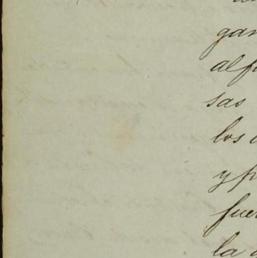 gan
alf
sas
los
y p
fuer
la